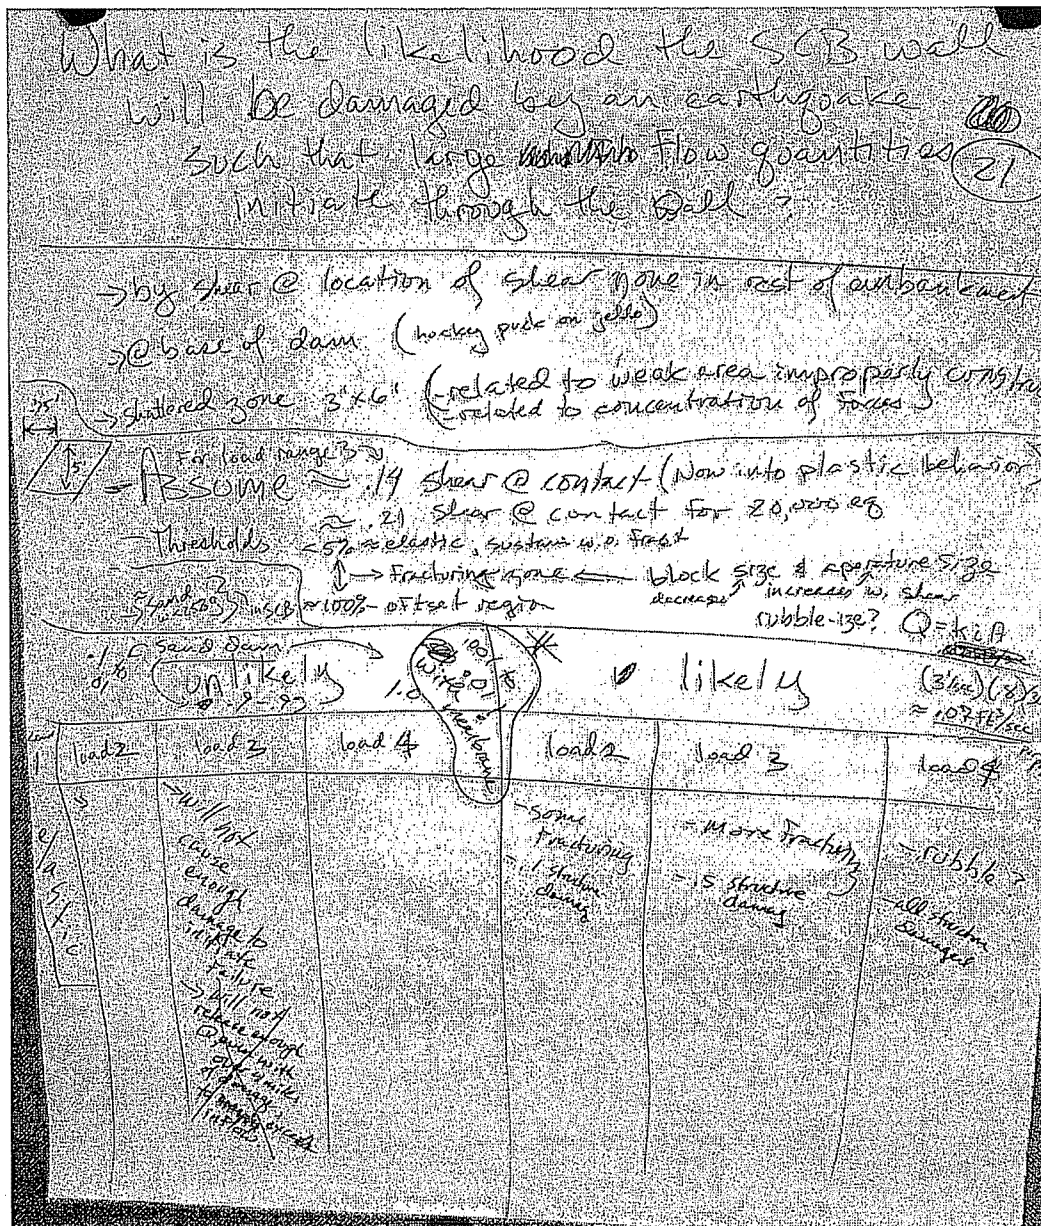 What is the likelihood the SCB wall
will be damaged by an earthquake
such that large Flow quantities
initiate through the wall ?
21
→ by shear @ location of shear zone in rest of embankment
→ @ base of dam (hockey puck on jello)
→ shattered zone 3'x6' (-related to weak area improperly constru
-related to concentration of forces
For load range 3
- Assume ≈ .14 shear @ contact (Now into plastic behavior)
≈ .21 shear @ contact for 20,000 eq
5'
- Thresholds <5% ≈ elastic, sustain w.o. fract
→ Fracturing zone ← block size & aperature size
decreases increases w. shear
≈100% - offset region rubble-ize? Q=kiA
unlikely
.9-.93
1.0
.001 to
.01
with
membrane
likely
≈ .07 ft³/sec
load 2 load 3 load 4 load 2 load 3 load 4
elastic
→ will not
cause
enough
damage to
initiate
failure
→ will not
release enough
Q even with
- some
fracturing
- .1 structure
damag
- More Fracturing
- .5 structure
damag
- rubble ?
- all structure
damaged